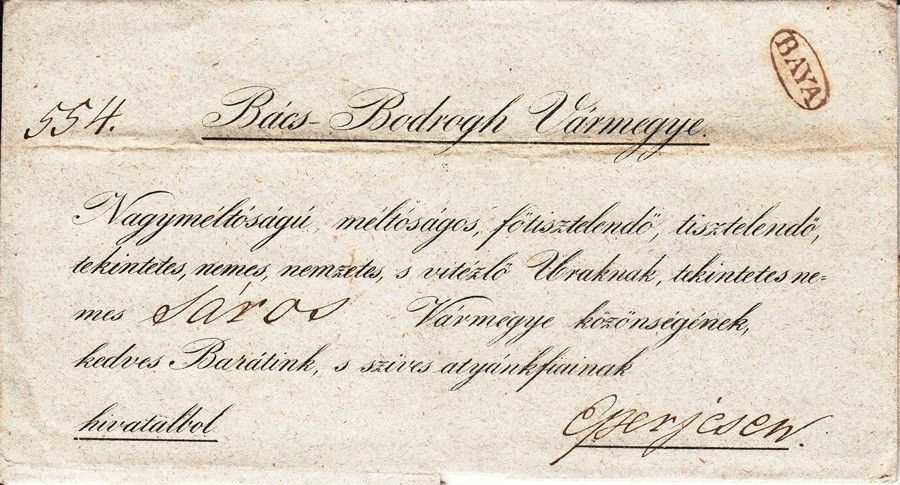 BAYA
554. Bács-Bodrogh Vármegye.
Nagyméltóságú, méltóságos, főtisztelendő, tisztelendő,
tekintetes, nemes, nemzetes, s vitézlő Uraknak, tekintetes ne-
mes Sáros Vármegye közönségének,
kedves Barátink, s szíves atyánkfiainak
hivatalbol Eperjesen.